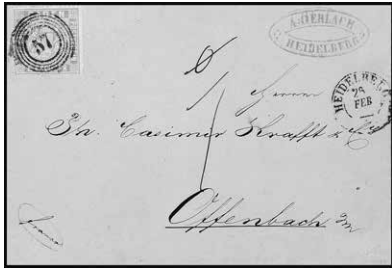 57
A. GERLACH
HEIDELBERG
HEIDELBERG
25
FEB
Herrn
Casimir Krafft
Offenbach a/m
franco